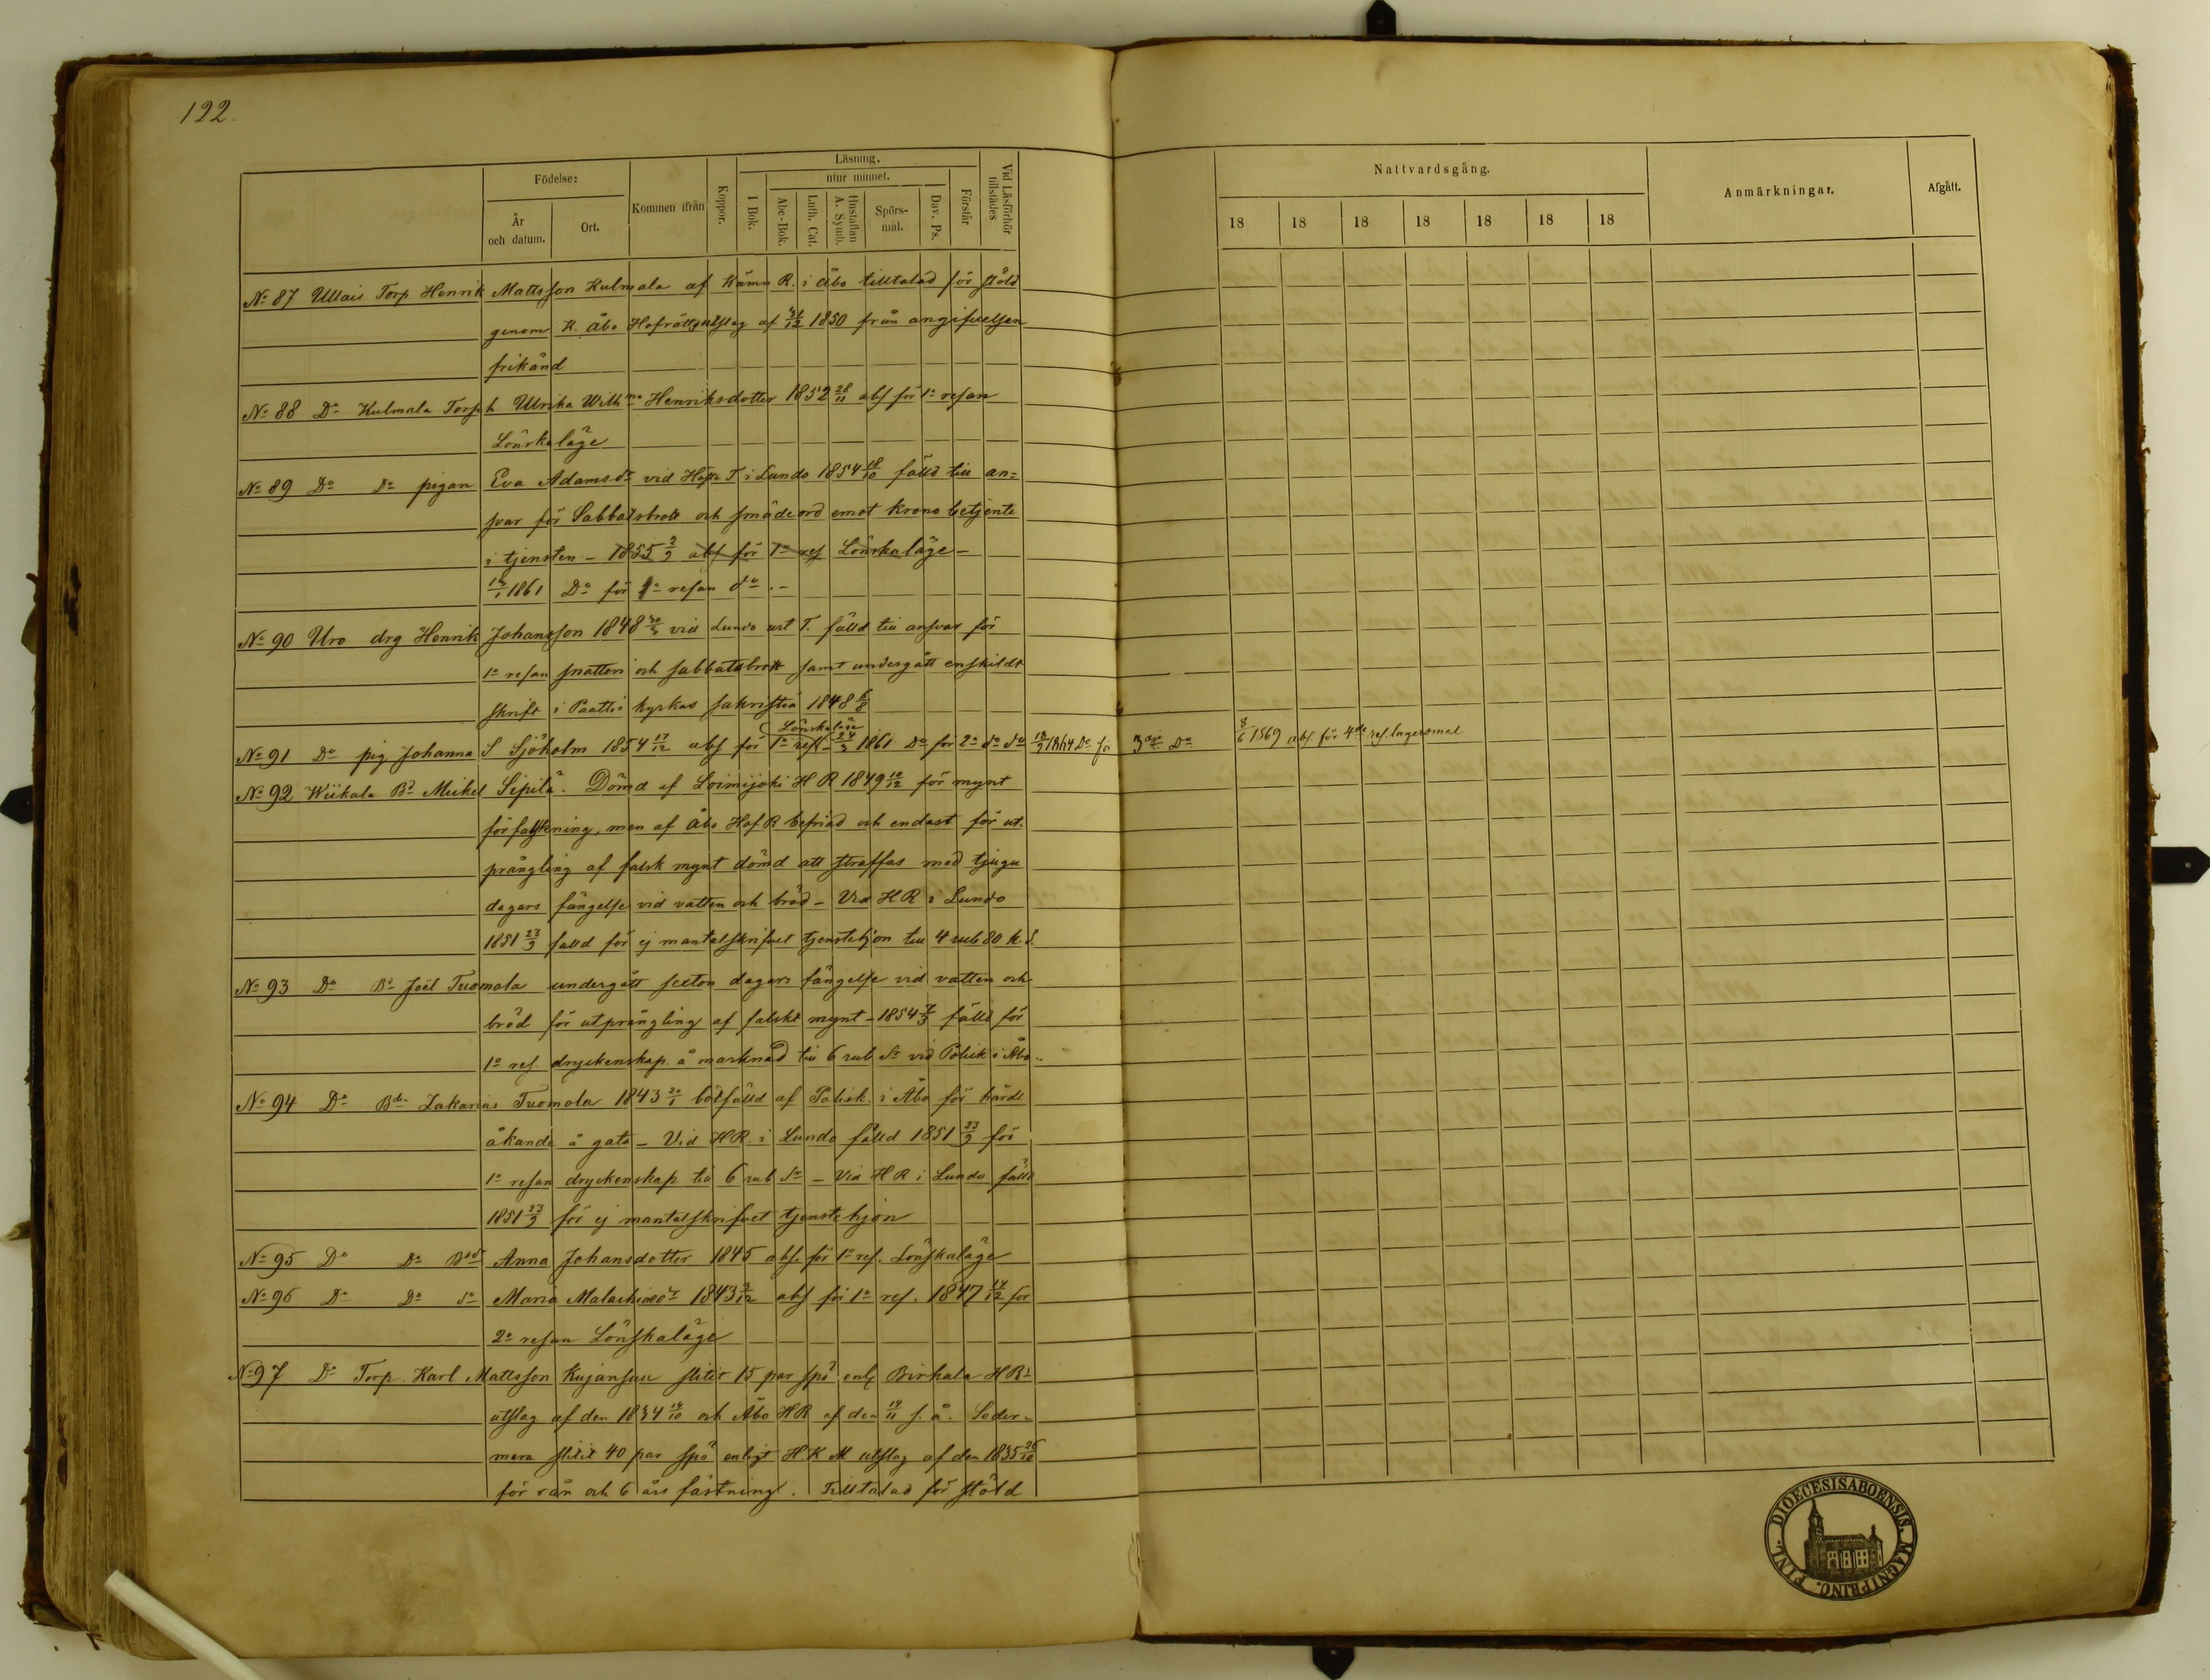 122.
Födelse:
Kommen ifrån
Koppor.
Läsning,
utur minnet.
Vid Läsförhör tillstädes
År och datum.
Ort.
I Bok.
Abc-Bok.
Luth. Cat.
Hustaflan A. Symb.
Spörs-mål.
Dav. Ps.
Förstår
Nattvardsgång.
Anmärkningar.
Afgått.
18 18 18 18 18 18 18
No 87 Ullais Torp Henrik Mattsson Kulmala af Kämn R. i Åbo tilltalad för stöld
genom K. Åbo Hofrätts utslag af 31/12 1850 från angifvelsen
frikänd
No 88 Do Kulmala Torp h Ulrika Wilhma Henriksdotter 1852 28/11 abs för 1a resan
Lönskaläge
No 89 Do Do pigan Eva Adamsdr vid Höste T i Lundo 1854 18/10 fälld till an=
svar för Sabbatsbrott och smädeord emot Krono betjente
i tjensten - 1855 2/9 abs för 1a res Lönskaläge -
1861 Do för 1a resan do. -
No 90 Uro drg Henrik Johansson 1848 vid Lundo urt T. fälld till ansvar för
1a resan snatteri och sabbatsbrott samt undergått enskildt
skrift i Paattis kyrkas sakristia 1848 6/8
Lönskaläge
No 91 Do pig Johanna S Sjöholm 1854 17/12 abs för 1a res - 24/3 1861 Do för 2a do do 18/9 1864 Do för 3dje Do 8/6 1869 abs. för 4de res. lägersmål
No 92 Wiikala Bd Mickel Sipilä. Dömd af Loimijoki H R 1849 12/12 för mynt
förfalskning, men af Åbo Hof R befriad och endast för ut-
prångling af falsk mynt dömd att straffas med tjugu
dagars fängelse vid vatten och bröd - Vid H R i Lundo
1851 23/9 fälld för ej mantalskrifvet tjenstehjon till 4 rub 80 k. S.
No 93 Do Bd Joël Tuomola undergått sexton dagars fängelse vid vatten och
bröd för utprångling af falskt mynt - 1854 7/3 fälld för
1a res. dryckenskap å marknad till 6 rub Sr vid Polisk i Åbo -
No 94 Do Bdn Zakarias Tuomola 1843 20/1 bötfälld af Polisk. i Åbo för hårdt
åkande å gata - Vid H R. i Lundo fälld 1851 23/9 för
1a resan dryckenskap till 6 rub Sr - Vid H R i Lundo fälld
1851 23/9 för ej mantalskrifvet tjenstehjon
No 95 Do Do Bddr Anna Johansdotter 1845 abs. för 1a res. Lönskaläge
No 96 Do Do Maria Malachiaedr 1843 3/12 abs för 1a res. 1847 14/12 för
2a resan Lönskaläge
No 97 Do Torp. Karl Mattsson Kujansuu slitit 15 par spö enl. Birkala HRs
utslag af den 1834 14/10 och Åbo HR af den 14/11 s. å. Seder=
mera slitit 40 par spö enligt H K M utslag af den 1835 26/10
för rån och 6 års fästning. Tilltalad för stöld
DIOECESIS ABOENSIS. MAGNI PRINC. FINL.